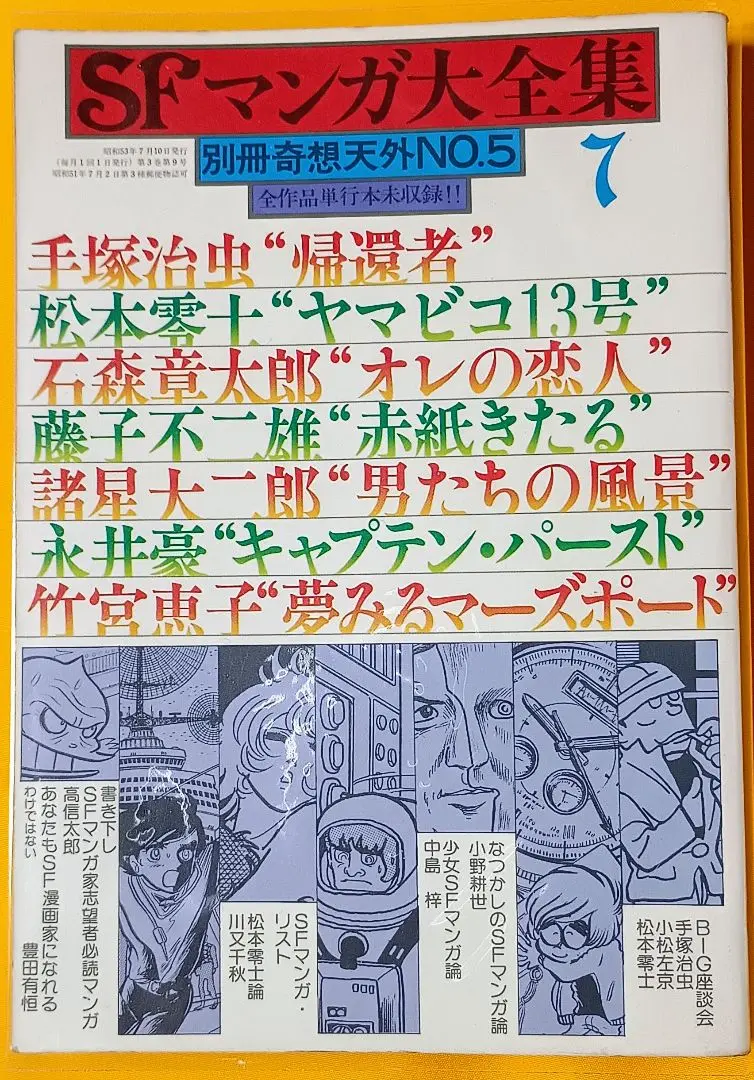 SFマンガ大全集
別冊奇想天外NO.5
全作品単行本未収録!!
7
昭和53年7月10日発行
(毎月1回1日発行)第3巻第9号
昭和51年7月2日第3種郵便物認可
手塚治虫“帰還者”
松本零士“ヤマビコ13号”
石森章太郎“オレの恋人”
藤子不二雄“赤紙きたる”
諸星大二郎“男たちの風景”
永井豪“キャプテン・パースト”
竹宮恵子“夢みるマーズポート”
BIG座談会
手塚治虫
小松左京
松本零士
なつかしのSFマンガ論
小野耕世
少女SFマンガ論
中島 梓
SFマンガ・
リスト
松本零士論
川又千秋
書き下し
SFマンガ家志望者必読マンガ
高信太郎
あなたもSF漫画家になれる
わけではない 豊田有恒